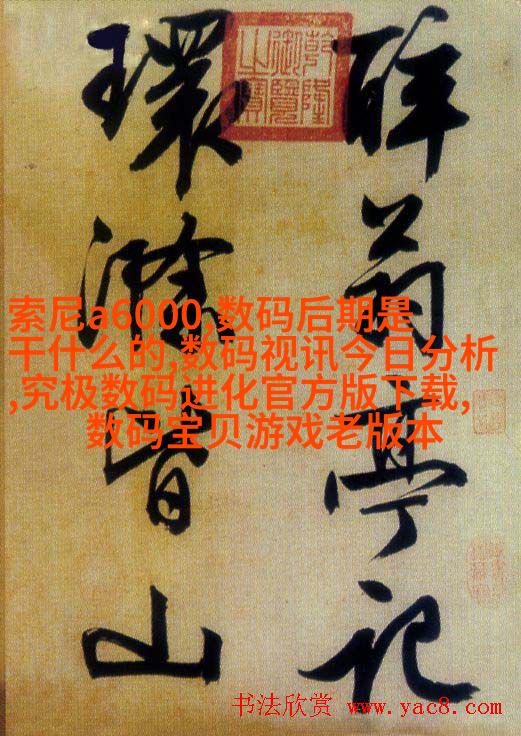 醉翁亭記
環滁皆山
乾隆
御覽
之寶
索尼a6000 数码后期是
干什么的,数码视讯今日分析
,究极数码进化官方版下载,
数码宝贝游戏老版本
书法欣赏 www.yac8.com